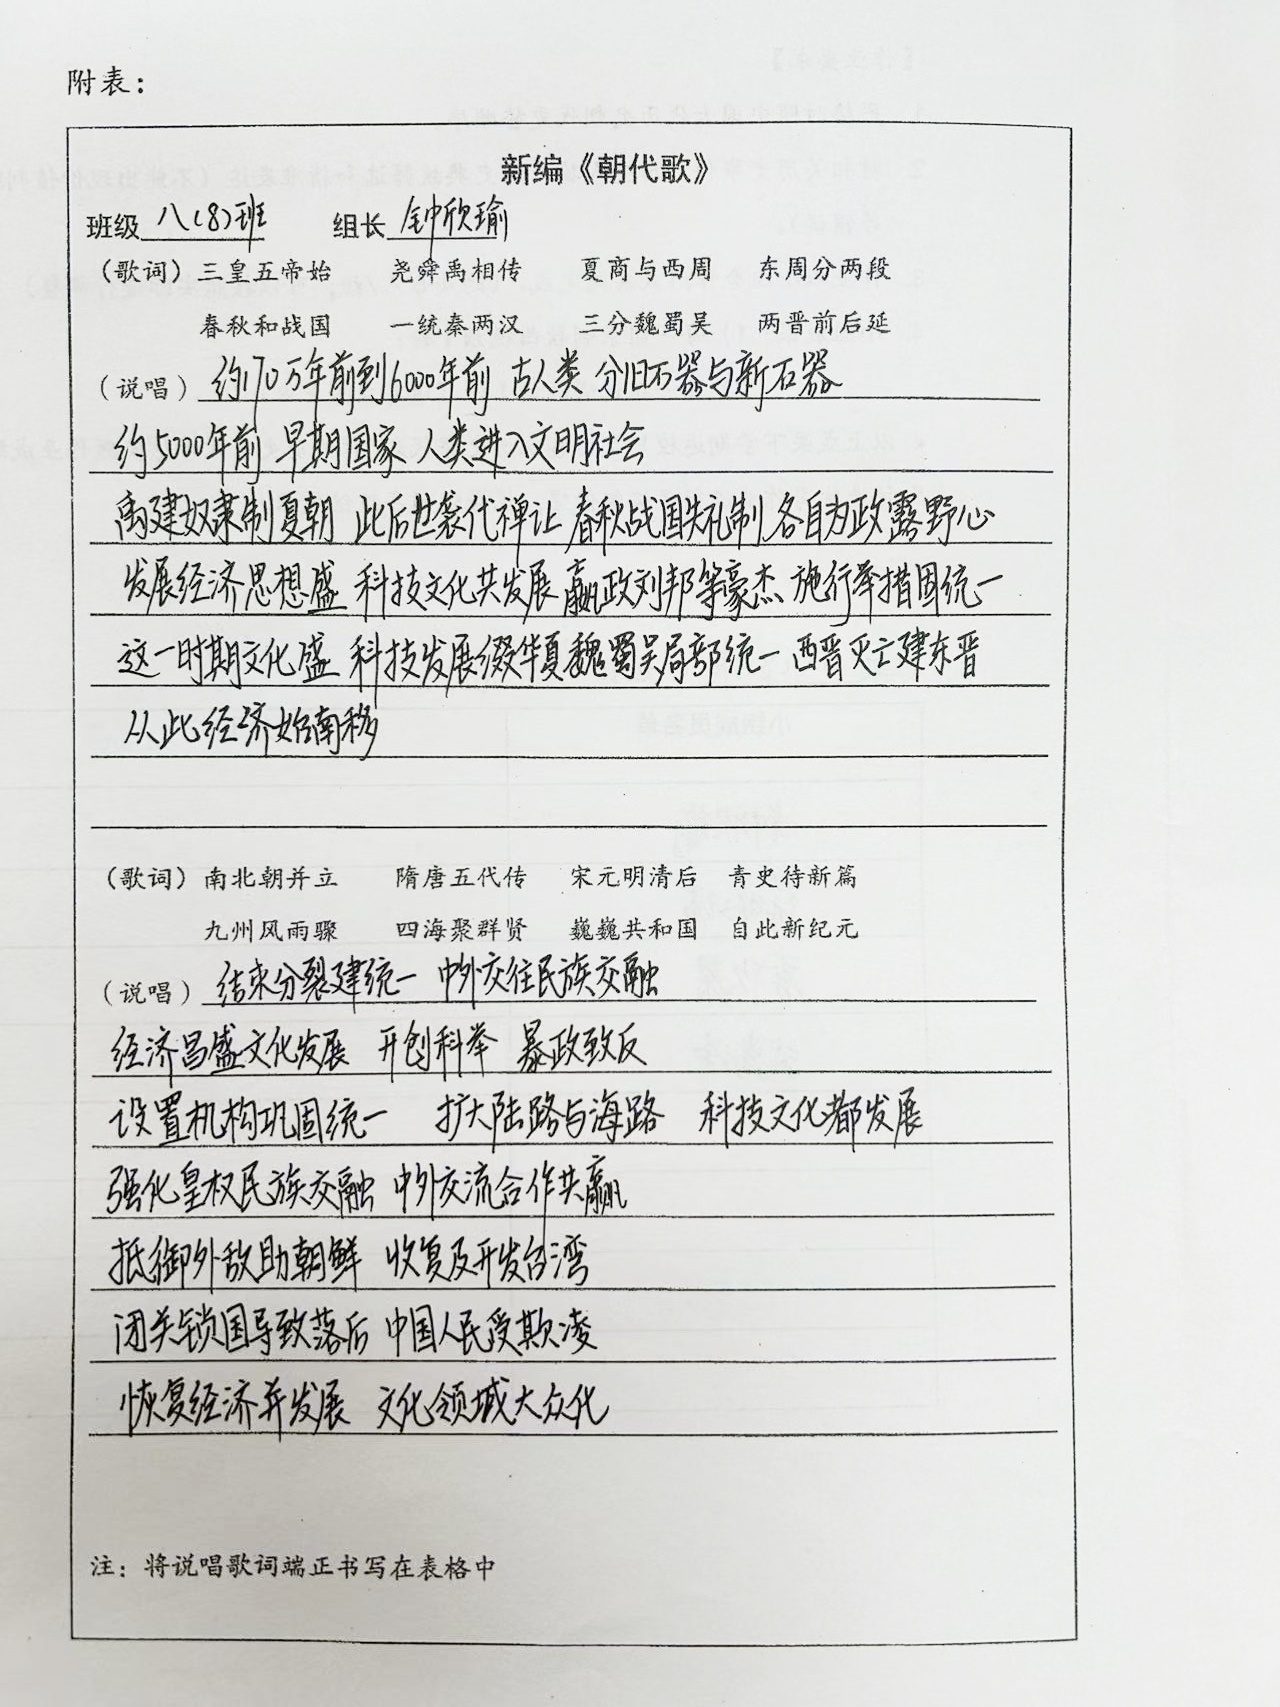 附表：
新编《朝代歌》
班级 八(8)班 组长 钟欣瑜
（歌词）三皇五帝始 尧舜禹相传 夏商与西周 东周分两段
春秋和战国 一统秦两汉 三分魏蜀吴 两晋前后延
（说唱）约170万年前到6000年前 古人类 分旧石器与新石器
约5000年前 早期国家 人类进入文明社会
禹建奴隶制夏朝 此后世袭代禅让 春秋战国失礼制 各自为政露野心
发展经济思想盛 科技文化共发展 嬴政刘邦等豪杰 施行举措固统一
这一时期文化盛 科技发展缀华夏 魏蜀吴局部统一 西晋灭亡建东晋
从此经济始南移
（歌词）南北朝并立 隋唐五代传 宋元明清后 青史待新篇
九州风雨骤 四海聚群贤 巍巍共和国 自此新纪元
（说唱）结束分裂建统一 中外交往民族交融
经济昌盛文化发展 开创科举 暴政致反
设置机构巩固统一 扩大陆路与海路 科技文化都发展
强化皇权民族交融 中外交流合作共赢
抵御外敌助朝鲜 收复及开发台湾
闭关锁国导致落后 中国人民受欺凌
恢复经济并发展 文化领域大众化
注：将说唱歌词端正书写在表格中